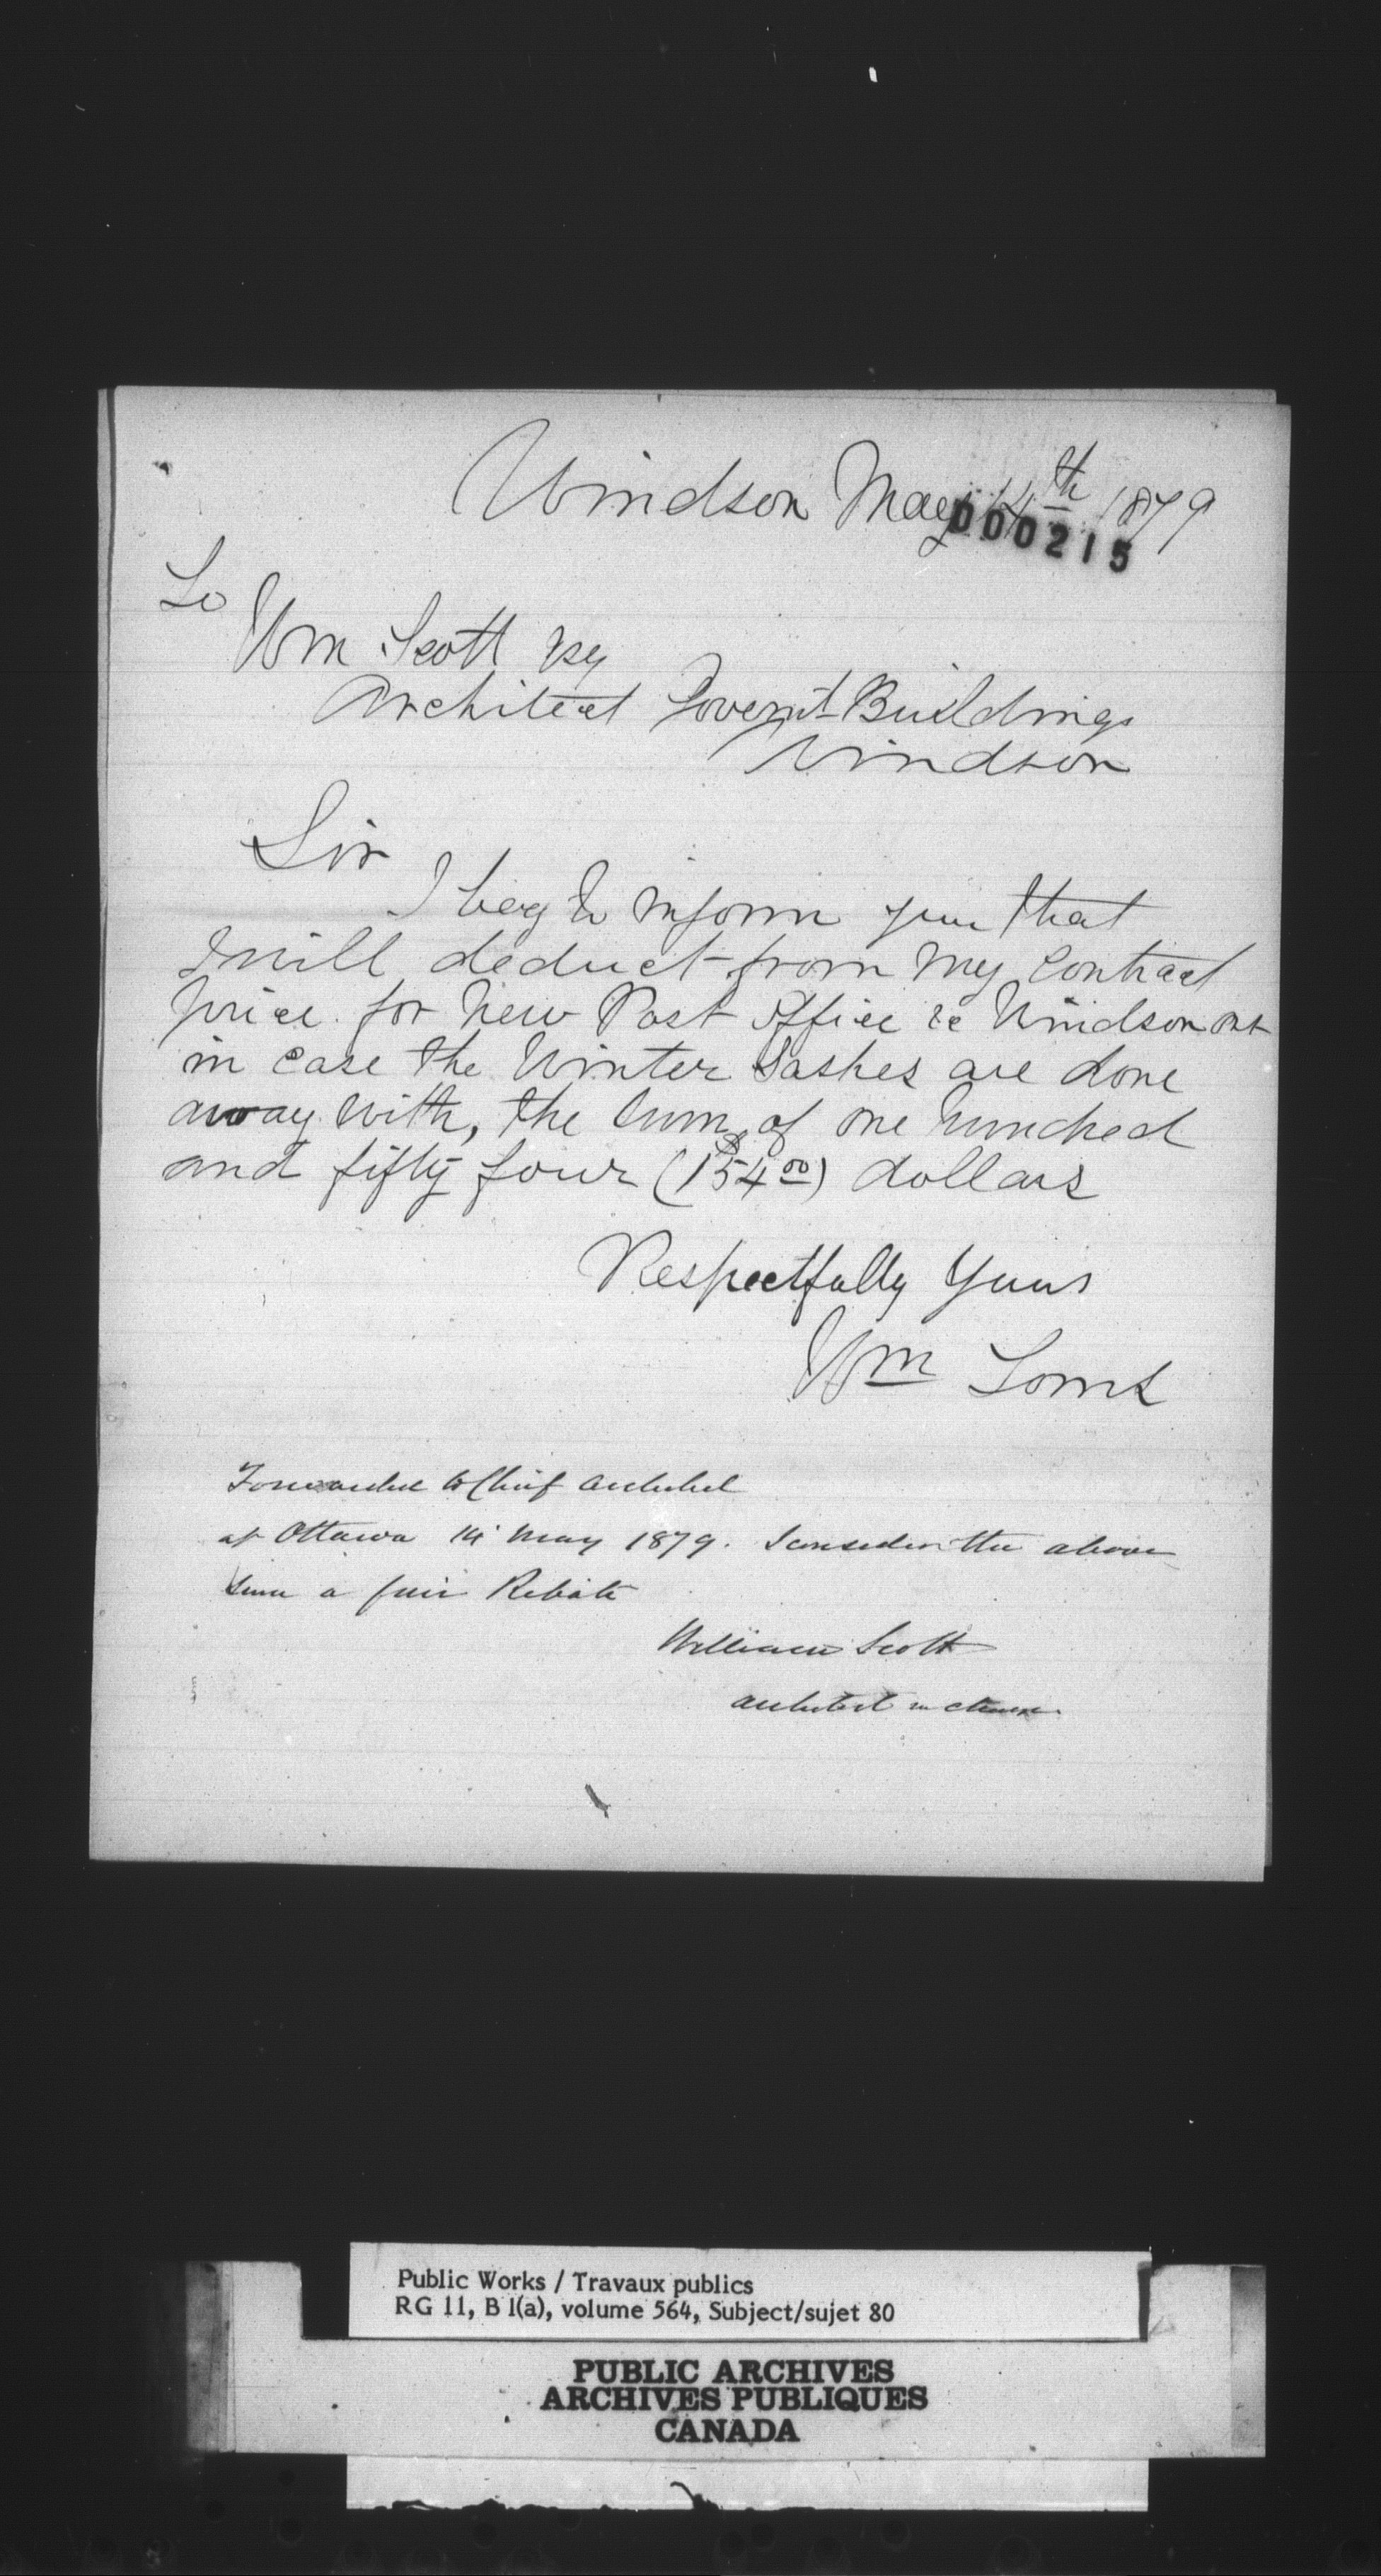 Windsor May 14th 1879
000215
To
Wm Scott Esq
Architect Governt Buildings
Windsor
Sir
I beg to inform you that
I will deduct from my contract
price for New Post Office &c Windsor Ont
in case the Winter Sashes are done
away with, the sum of one hundred
and fifty four ($154.00) dollars
Respectfully Yours
Wm
Forwarded to Chief Architect
at Ottawa 14 May 1879. I consider the above
Sum a fair Rebate
William Scott
Architect in charge
Public Works / Travaux publics
RG 11, B 1(a), volume 564, Subject/sujet 80
PUBLIC ARCHIVES
ARCHIVES PUBLIQUES
CANADA